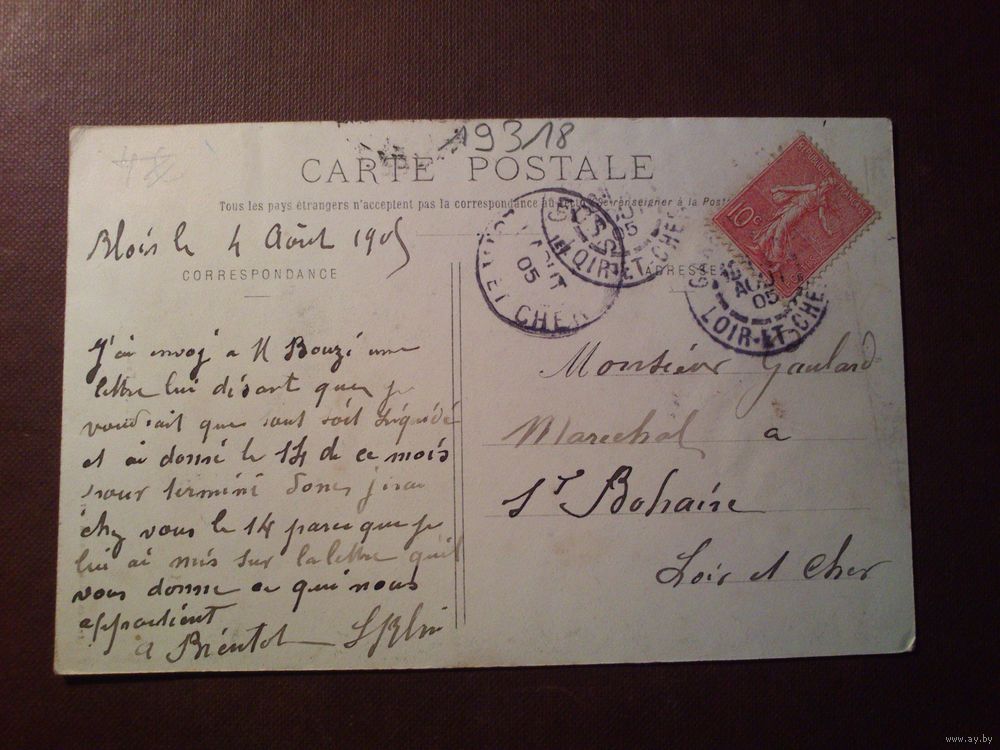 19318
CARTE POSTALE
Tous les pays étrangers n'acceptent pas la correspondance au recto (Se renseigner à la Poste
Blois le 4 Août 1905
CORRESPONDANCE
ADRESSE
LOIR-ET-CHER
05
ET CHER
AOUT
05
LOIR-ET-CHER
10c
J'ai envoj a M Bouzi une
lettre lui disant que je
voudrait que tout soit liquidé
et ai donné le 14 de ce mois
pour terminé donc j'irai
chez vous le 14 parce que je
lui ai mis sur la lettre qu'il
vous donne ce qui nous
appartient
a Biéntot
Monsieur Gaulard
Marechal a
St Bohaire
Loir et Cher
www.ay.by